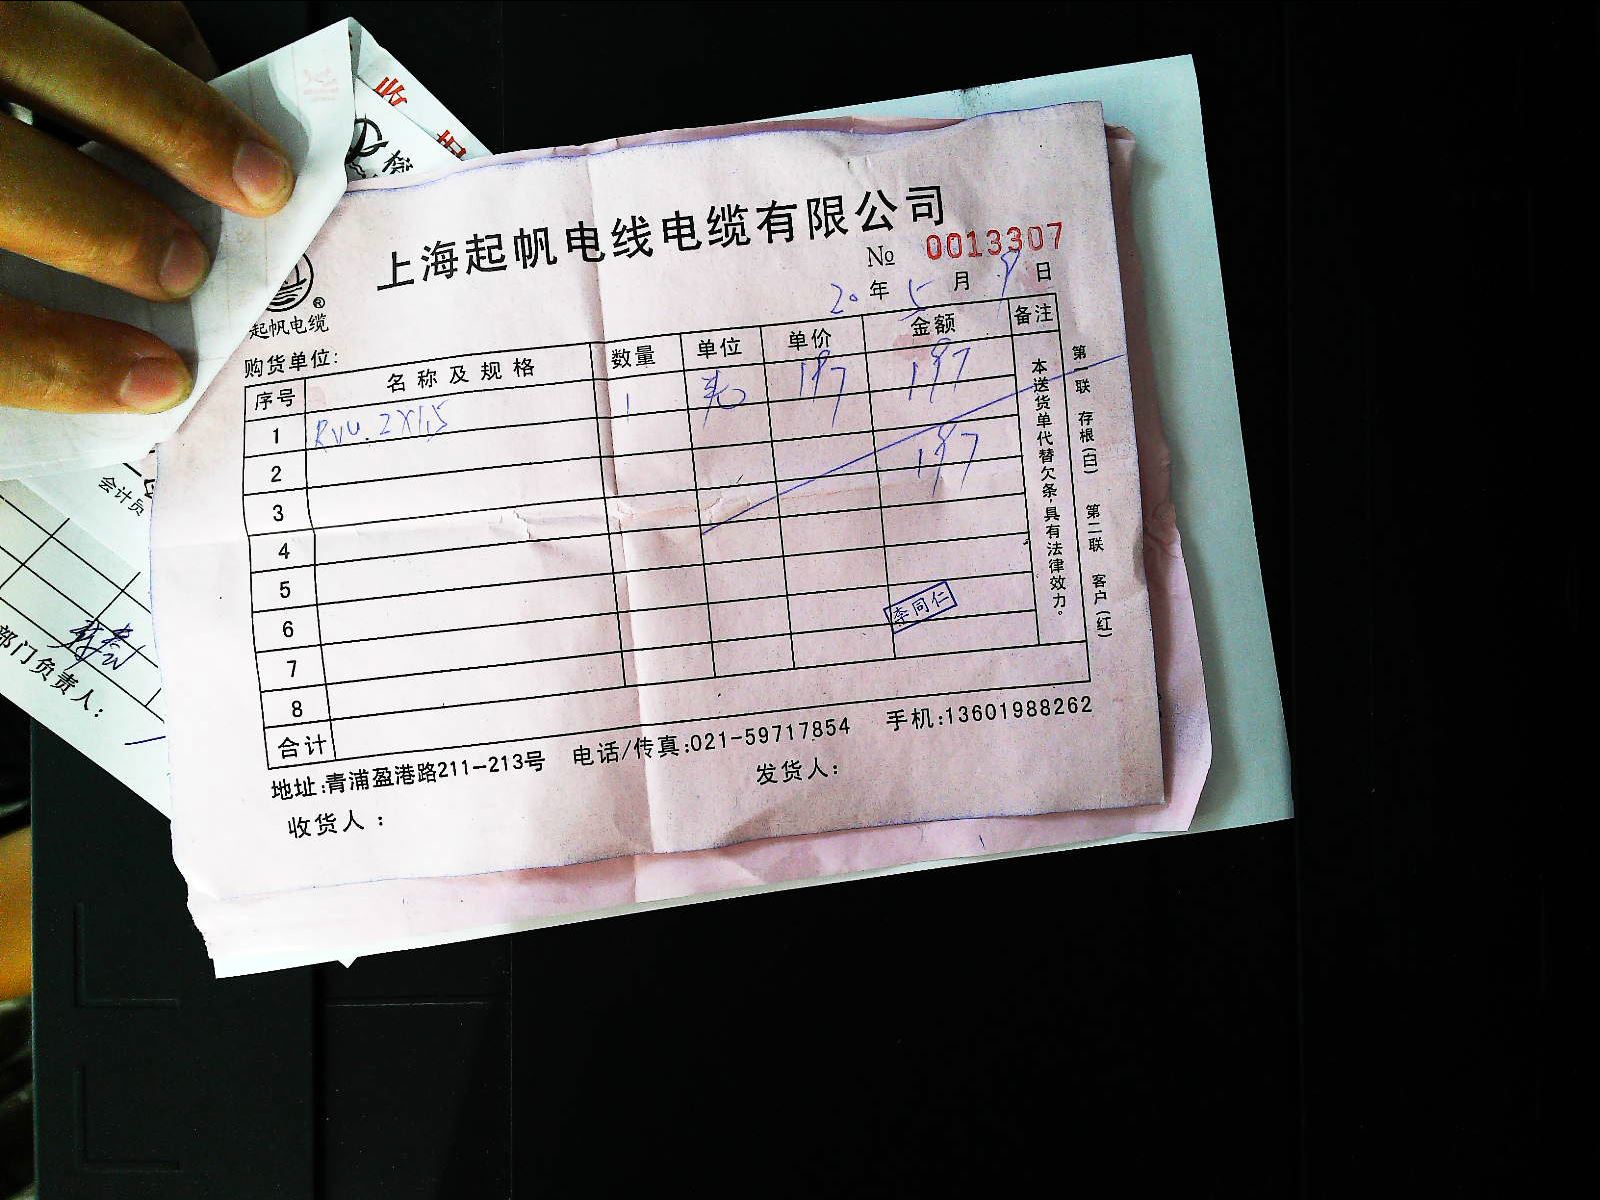 上海起帆电线电缆有限公司
№ 0013307
20年5月9日
®
起帆电缆
购货单位:
序号 名称及规格 数量 单位 单价 金额 备注
1 RVV 2X1.5 1 197 197
2
197
3
4
5
6
李同仁
7
8
合计
本送货单代替欠条,具有法律效力。
第一联 存根(白) 第二联 客户(红)
地址:青浦盈港路211-213号 电话/传真:021-59717854 手机:13601988262
收货人: 发货人:
会计员
部门负责人: